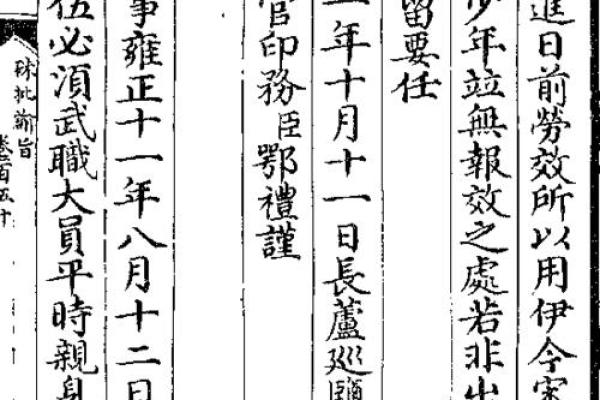 進日前勞效所以用伊今寀
少年竝無報效之處若非出
留要任
年十月十一日長蘆巡鹽
管印務臣鄂禮謹
事雍正十一年八月十二日
伍必須武職大員平時親身
硃批諭旨
卷二百五十